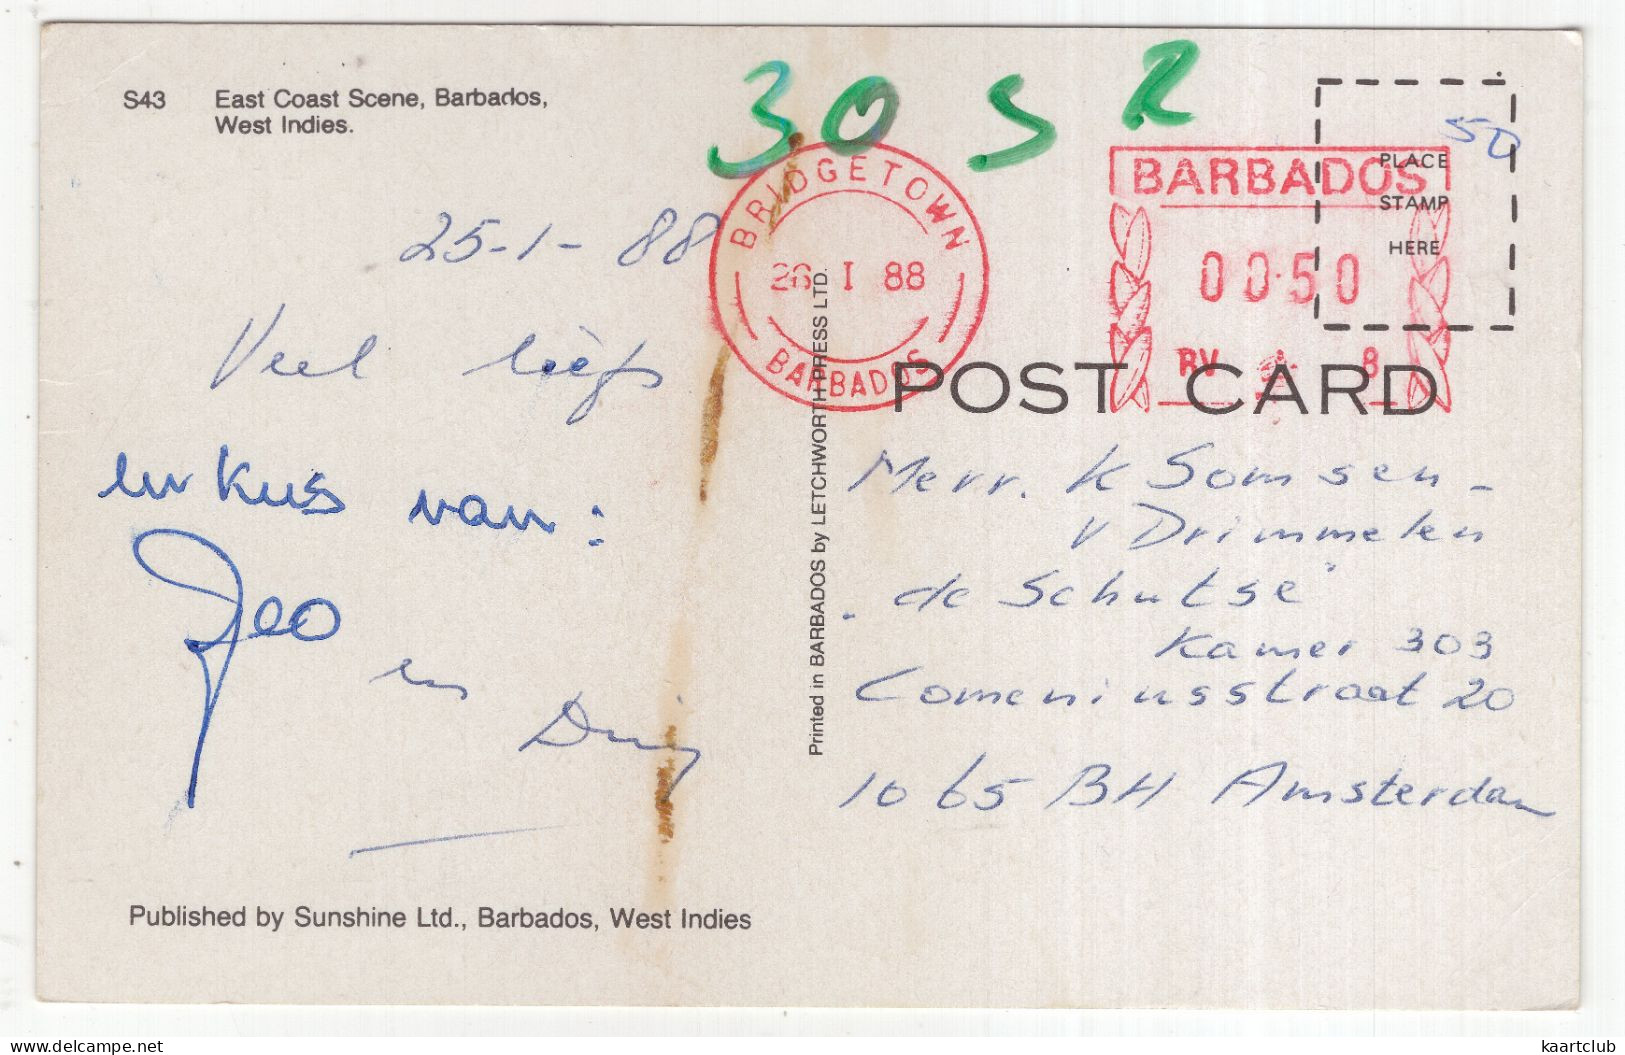 S43 East Coast Scene, Barbados,
West Indies.
30 S R
BRIDGETOWN
26 I 88
BARBADOS
BARBADOS
00.50
RV 8
50
PLACE
STAMP
HERE
POST CARD
25-1-88
Veel liefs
en kus van:
en
Printed in BARBADOS by LETCHWORTH PRESS LTD.
Mevr. K Somsen -
v Drimmelen
"de Schutse"
Kamer 303
Comeniusstraat 20
1065 BH Amsterdam
Published by Sunshine Ltd., Barbados, West Indies
delcampe.net
kaartclub